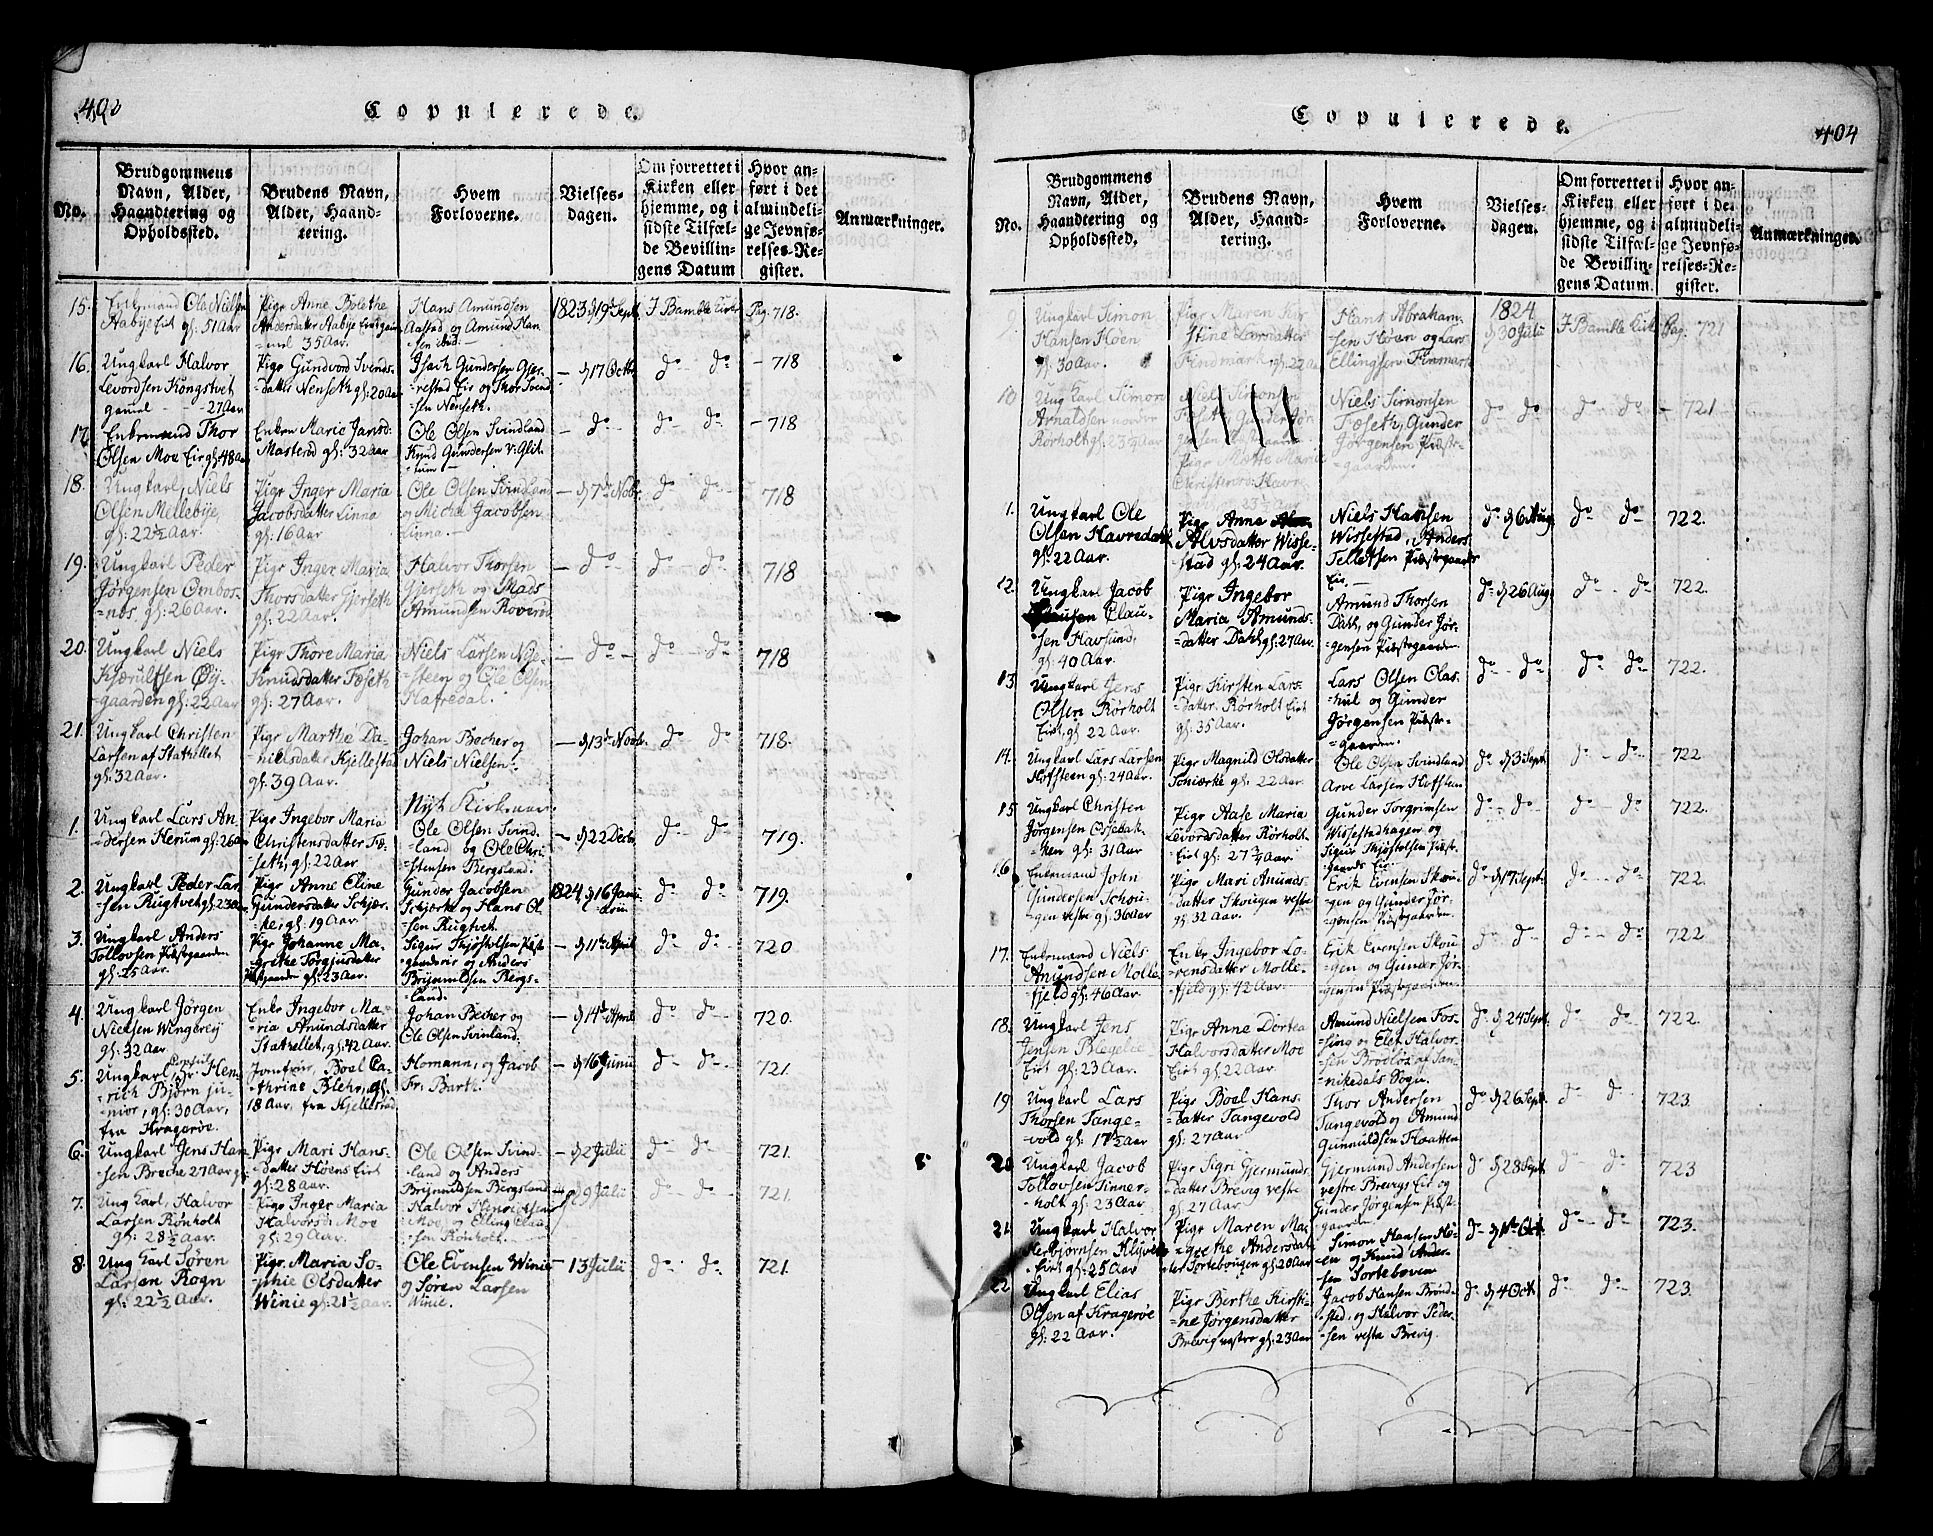 Copulerede.
No.
Brudgommens Navn, Alder, Haandtering og Opholdssted.
Brudens Navn, Alder, Haandtering.
Hvem Forloverne.
Vielsesdagen.
Om forrettet i Kirken eller hjemme, og i sidste Tilfælde Bevillingens Datum
Hvor anført i det almindelige Jevnførelses-Register.
Anmærkninger.
15. Enkemand Ole Nielsen
Aabye Eir gl: 51 Aar
Pige Anne Bolethe
Andersdatter Aabye
35 Aar.
Hans Amundsen
Aastad og Amund Han-
sen ibid.
1823 d 19 Sept. I Bamble Kirke Pag. 718.
16. Ungkarl Halvor
Levordsen Kongstvet
gamel - - - 27 Aar
Pige Gundvord Svends-
datter Nenseth gl: 20 Aar
Isach Gundersen Gjer-
restad Eir og Thor Svend
sen Nenseth.
— d 17 Octbr do — do — 718
17. Enkemand Thor
Olsen Moe Eir gl: 48 Aar
Enken Maria Jansd:
Masterød gl: 32 Aar
Ole Olsen Svindland
Knud Gundersen V: Glit
tum —
— do — do — do — 718
18. Ungkarl, Niels
Olsen Mellebye,
gl: 22½ Aar.
Pige Inger Maria
Jacobsdatter Linna
gl: 16 Aar
Ole Olsen Svindland
og Michel Jacobsen
Linna. —
— d 7de Novbr do do — 718
19. Ungkarl Peder
Jørgensen Ombos-
=nes gl: 26 Aar.
Pige Inger Maria
Thorsdatter Gjerseth
gl: 22 Aar.
Halvor Thorsen
Gjerseth og Mads
Amundsen Roverøe
— do — do — do — 718
20. Ungkarl Niels
Kjærulfsen Øy-
gaarden gl: 22 Aar
Pige Thore Maria
Knudsdatter Fæseth
gl: 27 Aar.
Niels Larsen Nye-
=steen og Ole Olsen
Hafredal.
— do — do — do — 718
21. Ungkarl Christen
Larsen af Stathellet
gl: 32 Aar.
Pige Marthe Da-
=nielsdatter Kjellestad
gl: 39 Aar.
Johan Becher og
Niels Nielsen.
— d 13de Novbr. do — do — 718.
Nyt Kirkeaar.
1. Ungkarl Lars An-
dersen Herum gl: 26 Aar
Pige Ingebor Maria
Christensdatter Fæ-
seth, gl: 22 Aar
Ole Olsen Svind-
land og Ole Chri-
=stensen Bergsland.
— d 22 Decbr do — do 719.
2. Ungkarl Peder Lar-
sen Rugtvet gl: 23 Aar
Pige Anne Eline
Gundersdatter Schjær-
ke, gl: 19 Aar.
Gunder Jacobsen
Schjærke og Hans Ol-
sen Rugtvet
1824, d 16 Janu-
arii do — do 719.
3. Ungkarl Anders
Tollovsen Præstgaarden
gl: 25 Aar.
Pige Johanne Ma-
grethe Torgjusdatter
gl: 23 Aar.
Sigur Thjøstolsen Præst
og Anders
Brynnildsen Bergs-
=land.
— d 11te April do — do 720.
4. Ungkarl Jørgen
Nielsen Wingerey
gl: 32 Aar
Enke Ingebor Ma-
ria Anundsdatter
Stathellet, gl: 42 Aar.
Johan Becher og
Ole Olsen Svinland.
— d 14de April do — do 720.
5. Ungkarl Consul Hr. Hen-
=rich Bjørn ju-
nior, gl: 30 Aar,
fra Kragerøe.
Jomfrue Boel Ca-
thrine Blehr, gl:
18 Aar, fra Kjellestad
Homann, og Jacob
Fr. Barth.
— d 16 Junii do — do — 721.
6. Ungkarl Jens Han-
sen Breche 27 Aar gl:
Pige Mari Hans-
datter Høens Eirt
gl: 28 Aar.
Ole Olsen Svind-
land og Anders
Brynnildsen Bergsland
— d 2 Julii do — do — 721.
7. Ungkarl, Halvor
Larsen Rønholt
gl: 28½ Aar.
Pige Inger Maria
Halvorsd: Moe
gl: 29 Aar.
Halvor Henrichsen
Moe, og Elling Claa-
=sen Rønholt.
— d 9 Julii do — do — 721.
8. Ung Karl Søren
Larsen Rogn
gl: 22½ Aar.
Pige Maria So-
phie Olsdatter
Winie gl: 21½ Aar.
Ole Evensen Winie
og Søren Larsen
Winie.
— 13 Julii do — do — 721.
Copulerede.
404
No.
Brudgommens Navn, Alder, Haandtering og Opholdssted.
Brudens Navn, Alder, Haandtering.
Hvem Forloverne.
Vielsesdagen.
Om forrettet i Kirken eller hjemme, og i sidste Tilfælde Bevillingens Datum.
Hvor anført i det almindelige Jevnførelses-Register.
Anmærkninger.
9 Ungkarl Simon
Hansen Høen
gl: 30 Aar.
Pige Maren Kir
stine Larsdatter
Findmark gl: 22 Aar
Hans Abraham-
sen Høen og Lars
Ellingsen Finmark
1824
d 30 Julii I Bamble Kirke Pag. 721
10 Ung Karl Simon
Arnoldsen nordre
Rörholt gl: 23½ Aar
Niels Simonsen
Fæseth Gunder Jør-
gensen Præstgaarden
Pige Mette Marie
Christensd: Havre
23½ Aar
Niels Simonsen
Fæseth, Gunder
Jørgensen Præst-
=gaarden.
do do — do do — 721
1. Ungkarl Ole
Olsen Havredal
gl: 22 Aar.
Pige Anne
Alvsdatter Wisse-
stad gl: 24 Aar.
Niels Hansen
Wissestad, Anders
Tellefsen Præstgaards
Eir. —
do d 6 Aug. do — do 722.
12. Ungkarl Jacob
Clau-
sen Havsund,
gl: 40 Aar.
Pige Ingebor
Maria Amunds-
datter Dahl gl: 27 Aar.
Amund Thorsen
Dahl, og Gunder Jør-
gensen Præstgaarden
do d 26 Aug do — do 722.
13. Ungkarl Jens
Olsen Rörholt
Eirt, gl 22 Aar.
Pige Kirsten Lars-
datter Rörholt Eirt
gl: 35 Aar.
Lars Olsen Clas-
hul og Gunder
Jørgensen Præst-
=gaarden.
do — do do — do 722.
14. Ungkarl Lars Larsen
Hifsteen gl: 24 Aar.
Pige Magnild Olsdatter
Schiærke gl: 22 Aar.
Ole Olsen Svindland
Arve Larsen Hifsteen
do d 3 Sept. do — do 722.
15 Ungkarl Christen
Jørgensen Ossebak-
ken gl: 31 Aar
Pige Aase Maria
Levordsdatter Rörholt-
Eirt gl: 27¾ Aar
Gunder Torgrimsen
Wissestadhagen og
Sigur Thjøstolsen Præst-
gaards Eir —
do — do — do — do — 722.
16 Enkemand John
Gundersen Schou-
gen vestre gl: 36 Aar
Pige Mari Anunds-
datter Skougen vestre
gl: 32 Aar.
Erik Evensen Skou-
gen og Gunder Jør-
gensen Præstgaarden.
do d 17 Septr do — do 722.
17. Enkemand Niels
Anundsen Molle-
fjeld gl: 46 Aar.
Enke Ingebor Lo-
rensdatter Molle-
fjeld gl: 42 Aar.
Erik Evensen Skou-
gen og Gunder Jør-
gensen Præstgaarden.
do do do — do 722
18. Ungkarl Jens
Jensen Blegelie
Eirt gl: 23 Aar.
Pige Anne Dortea
Halvorsdatter Moe
Eirt gl: 22 Aar.
Amund Nielsen Fos-
sing og Elef Halvor-
sen Brødløs af San-
nikedals Sogn.
do d 24 Sept. do — do — 722.
19. Ungkarl Lars
Thorsen Tange-
vold gl: 17½ Aar
Pige Boel Hans-
datter Tangevold
gl: 27 Aar
Thor Andersen
Tangevold og Amund
Gunnuldsen Floatten
do d 26 Sept. do do — 723.
20 Ungkarl Jacob
Tollovsen Tinner-
holt gl: 23 Aar.
Pige Sigri Gjermunds-
datter Brevig vestre
gl: 27 Aar
Gjermund Andersen
vestre Brevigs Eir og
Gunder Jørgensen Præst-
=gaarden
do d 28 Sept. do — do 723
21. Ungkarl Halvor
Herbjørnsen
Eirt gl: 25 Aar
Pige Maren Ma-
grethe Andersdat-
ter Tortebougen gl: 20 Aar
Simon Hansen Hø-
en og Knud Ander-
sen Torteboven
do d 1ste Oct. do — do — 723.
22. Ungkarl Elias
Olsen af Kragerøe
gl: 22 Aar.
Pige Berthe Kirsti-
=ne Jørgensdatter
Brevig vestre gl: 23 Aar
Jacob Hansen Brønd-
sted, og Halvor Peder-
sen vestre Brevig.
do d 4 Oct. do — do — 723.